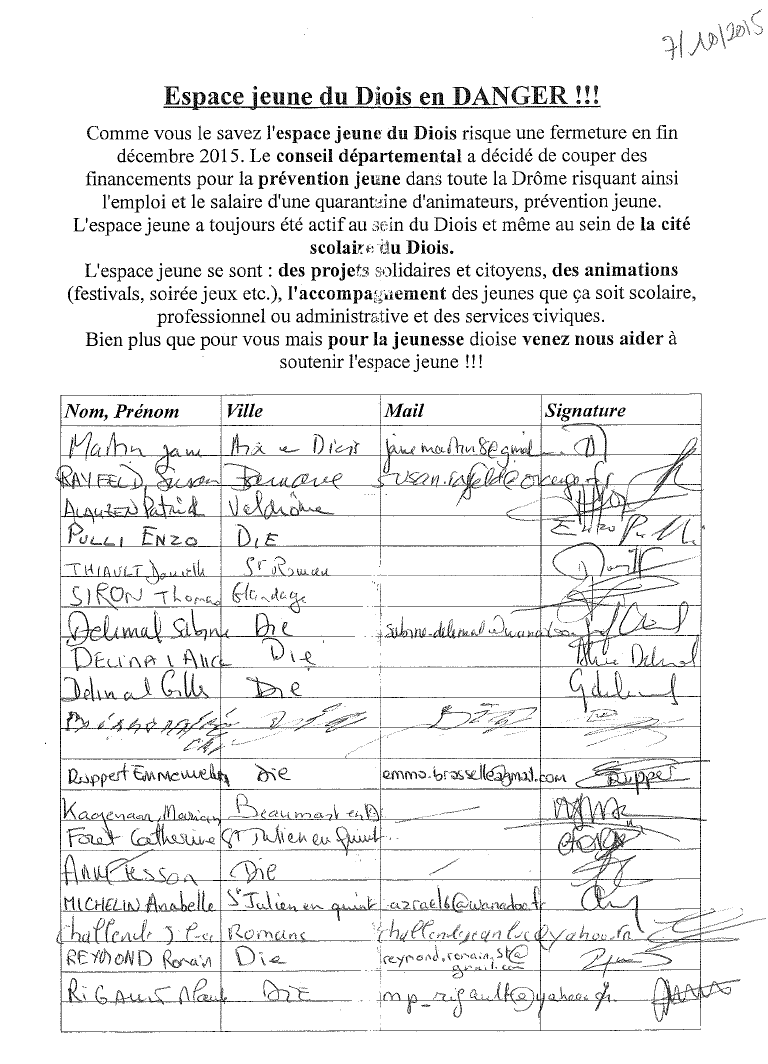 7/10/2015
Espace jeune du Diois en DANGER !!!
Comme vous le savez l'espace jeune du Diois risque une fermeture en fin
décembre 2015. Le conseil départemental a décidé de couper des
financements pour la prévention jeune dans toute la Drôme risquant ainsi
l'emploi et le salaire d'une quarantaine d'animateurs, prévention jeune.
L'espace jeune a toujours été actif au sein du Diois et même au sein de la cité
scolaire du Diois.
L'espace jeune se sont : des projets solidaires et citoyens, des animations
(festivals, soirée jeux etc.), l'accompagnement des jeunes que ça soit scolaire,
professionnel ou administrative et des services civiques.
Bien plus que pour vous mais pour la jeunesse dioise venez nous aider à
soutenir l'espace jeune !!!
Nom, Prénom Ville Mail Signature
Martin Jane
RAYFELD, Susan
Patrick Veldrôme
PULLI ENZO DIE Enzo Pulli
THIAULT Danielle St Roman
SIRON Thomas Glandage
Delimal Sabine Die
DELIMAL Alice Die Alice Delimal
Delimal Gilles Die
Ruppert Emmanuelle Die emma.brasselle@gmail.com Ruppert
Beaumont en D
Foret Catherine St Julien en Quint
Die
MICHELIN Anabelle St Julien en quint azrael6@wanadoo.fr
Challende J Luc Romans challendejeanluc@yahoo.fr
REYMOND Romain Die reymond.romain.st@
gmail.com
RIGAULT DIE mp_rigault@yahoo.fr